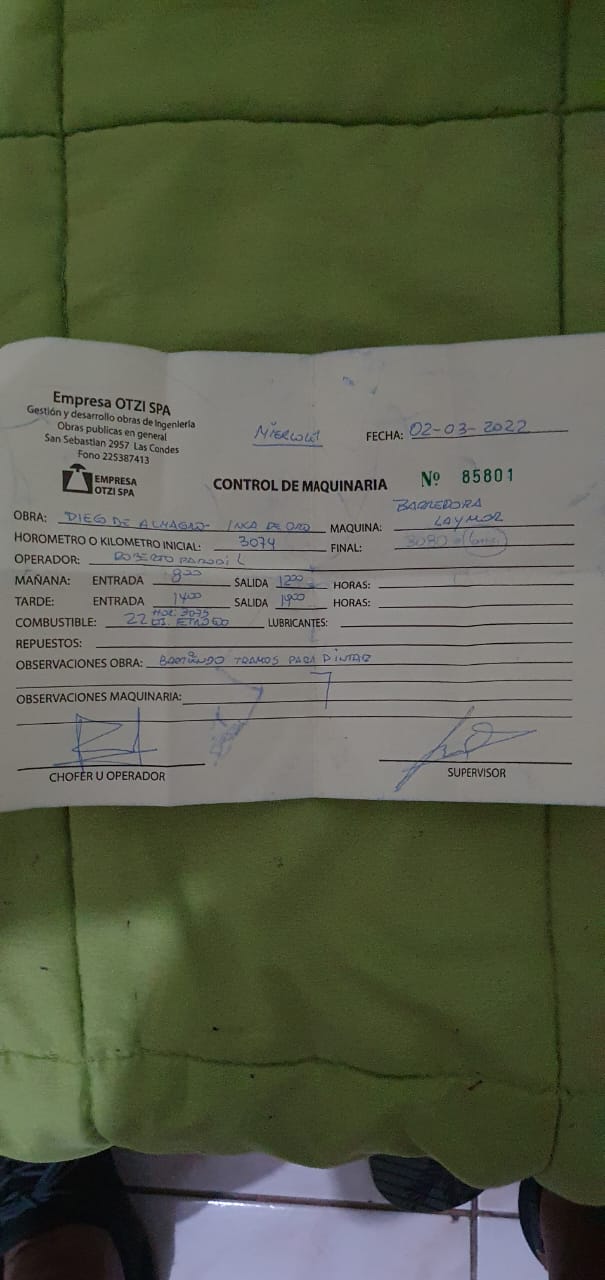 Empresa OTZI SPA
Gestión y desarrollo obras de Ingeniería
Obras publicas en general
San Sebastian 2957 Las Condes
Fono 225387413
EMPRESA
OTZI SPA
MIERCOLES
FECHA: 02-03-2022
CONTROL DE MAQUINARIA Nº 85801
OBRA: DIEGO DE ALMAGRO - INCA DE ORO MAQUINA: BARREDORA LAYMOR
HOROMETRO O KILOMETRO INICIAL: 3074 FINAL: 3080
OPERADOR: ROBERTO L
MAÑANA: ENTRADA 800 SALIDA 1200 HORAS:
TARDE: ENTRADA 1400 SALIDA 1900 HORAS:
COMBUSTIBLE: 22 HOR: 3075 LUBRICANTES:
REPUESTOS:
OBSERVACIONES OBRA: TRAMOS PARA PINTAR
OBSERVACIONES MAQUINARIA:
CHOFER U OPERADOR
SUPERVISOR